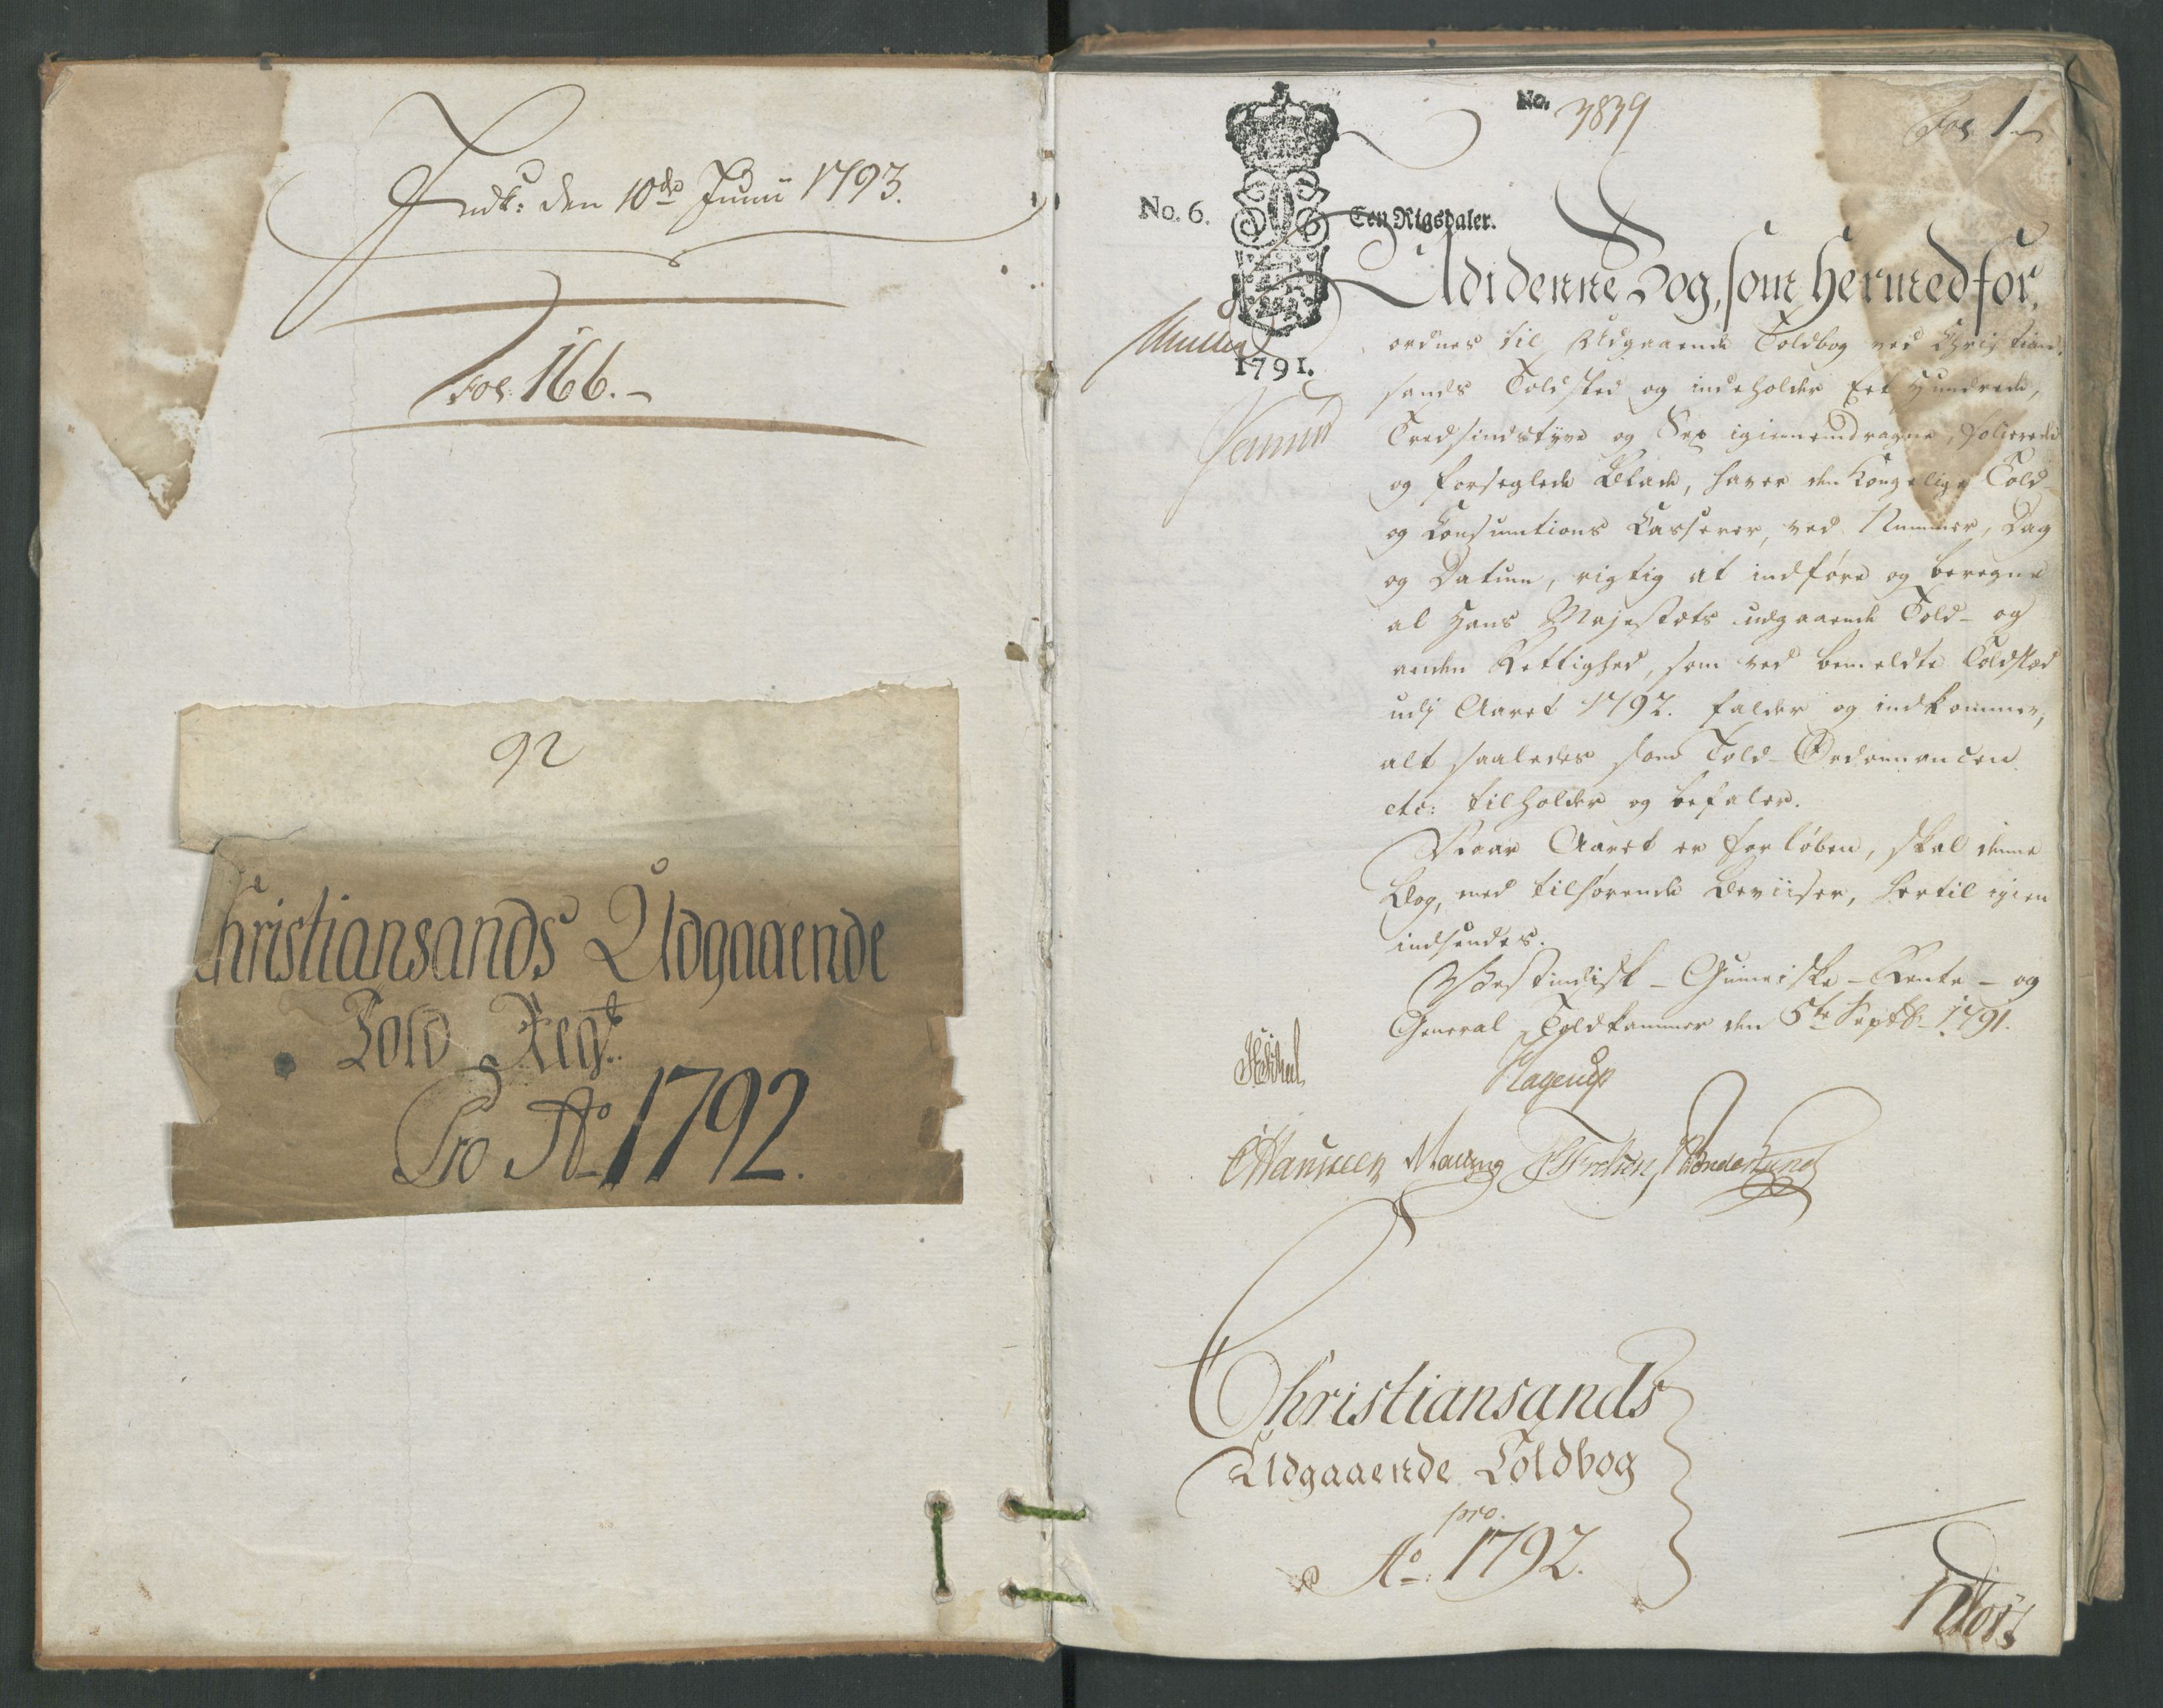 Indk: den 10de Junii 1793.
Fol. 166.-
92
Christiansands Udgaaende
Told Regst.
Pro Ao 1792.
No. 3839
Fol. 1
No. 6.
Ten Rigsdaler.
1791.
Udi denne Bog, som hermed for-
ordnes til Udgaaende Toldbog ved Christian-
sands Toldsted og indeholder Eet Hundrede,
Tredsindstyve og Sex igiennemdragne, folierede
og forseglede Blade, haver den Kongelige Told-
og Consumtions Casserer, ved Nummer, Dag
og Datum, rigtig at indføre og beregne
al Hans Majestets udgaaende Told- og
anden Rettighed, som ved bemeldte Toldsted
udi Aaret 1792. falder og indkommer,
alt saaledes som Told-Ordonnancen
etc: tilholder og befaler.
Naar Aaret er forløben, skal denne
Bog, med tilhørende Beviiser, hertil igien
indsendes.
Vestindisk-Guineiske-Rente- og
General Toldkammer den 5te Septbr 1791.
Hagerup
Malling
Christiansands
Udgaaende Toldbog
pro.
Ao: 1792.